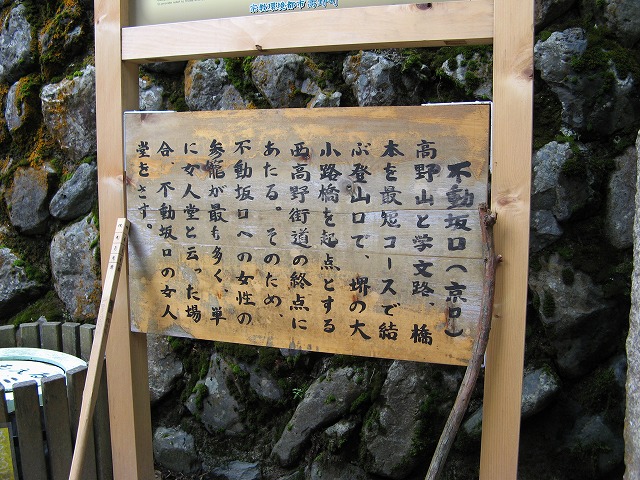 宗教環境都市 高野町
不動坂口（京口）
高野山と学文路、橋
本を最短コースで結
ぶ登山口で、堺の大
小路橋を起点とする
西高野街道の終点に
あたる。そのため、
不動坂口への女性の
参籠が最も多く、単
に女人堂と云った場
合、不動坂口の女人
堂をさす。